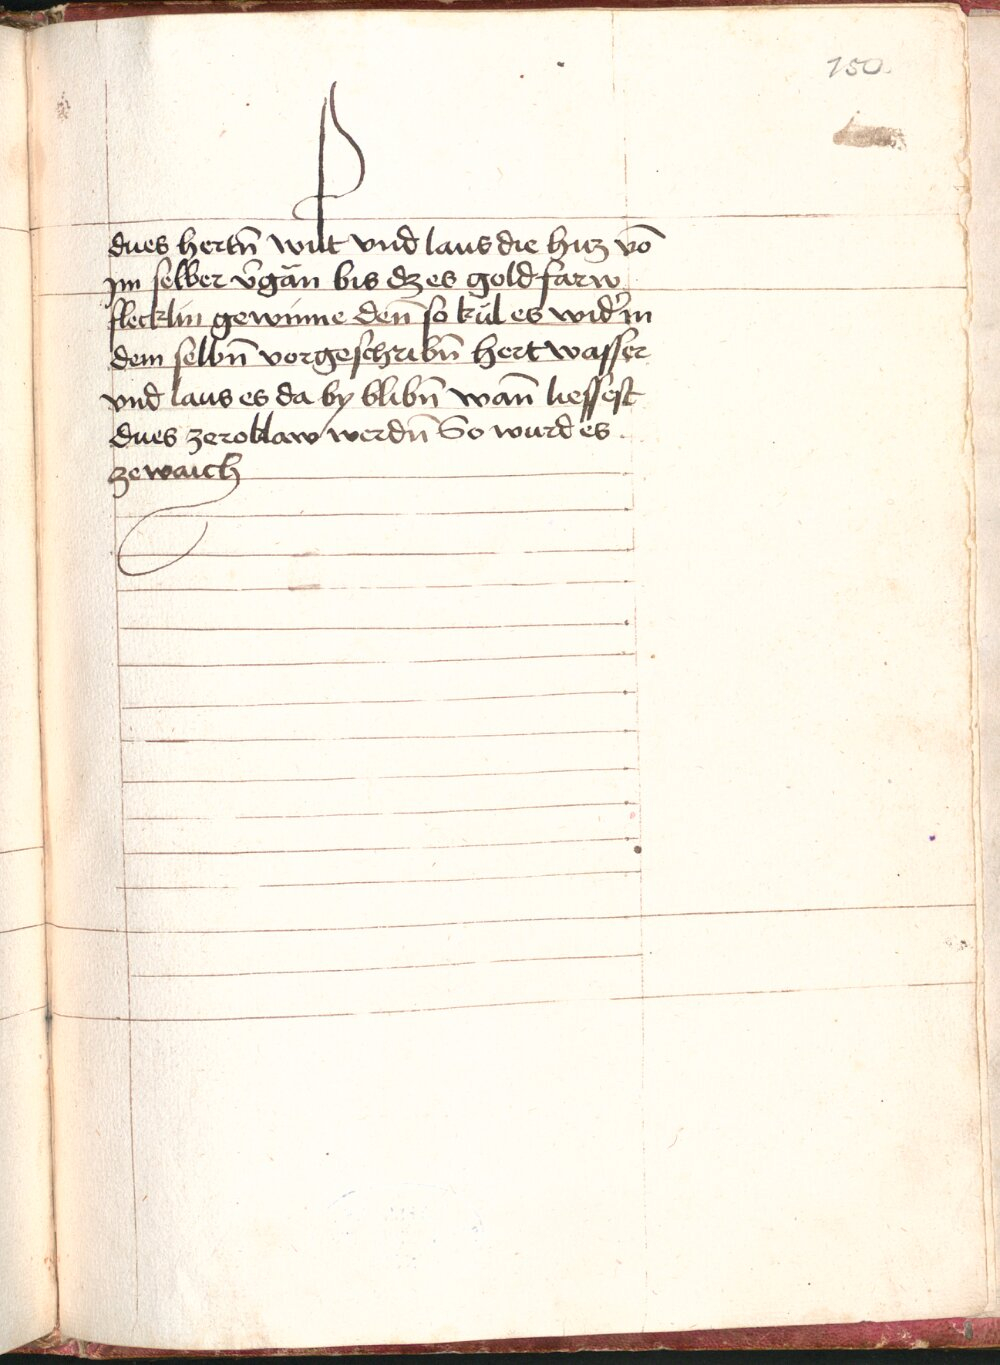 150.
dues hertn̄ wilt vnd laus die hitz vō
jm selber v̄găn bis dz es goldfarw
flecklin gewinne den̄ so kŭl es wid᾽ in
dem selbn̄ vorgeschribn̄ hert wasser
vnd laus es da by blibn̄ wan̄ liessest
dues zeroblaw werdn̄ So wurd es
ze waich